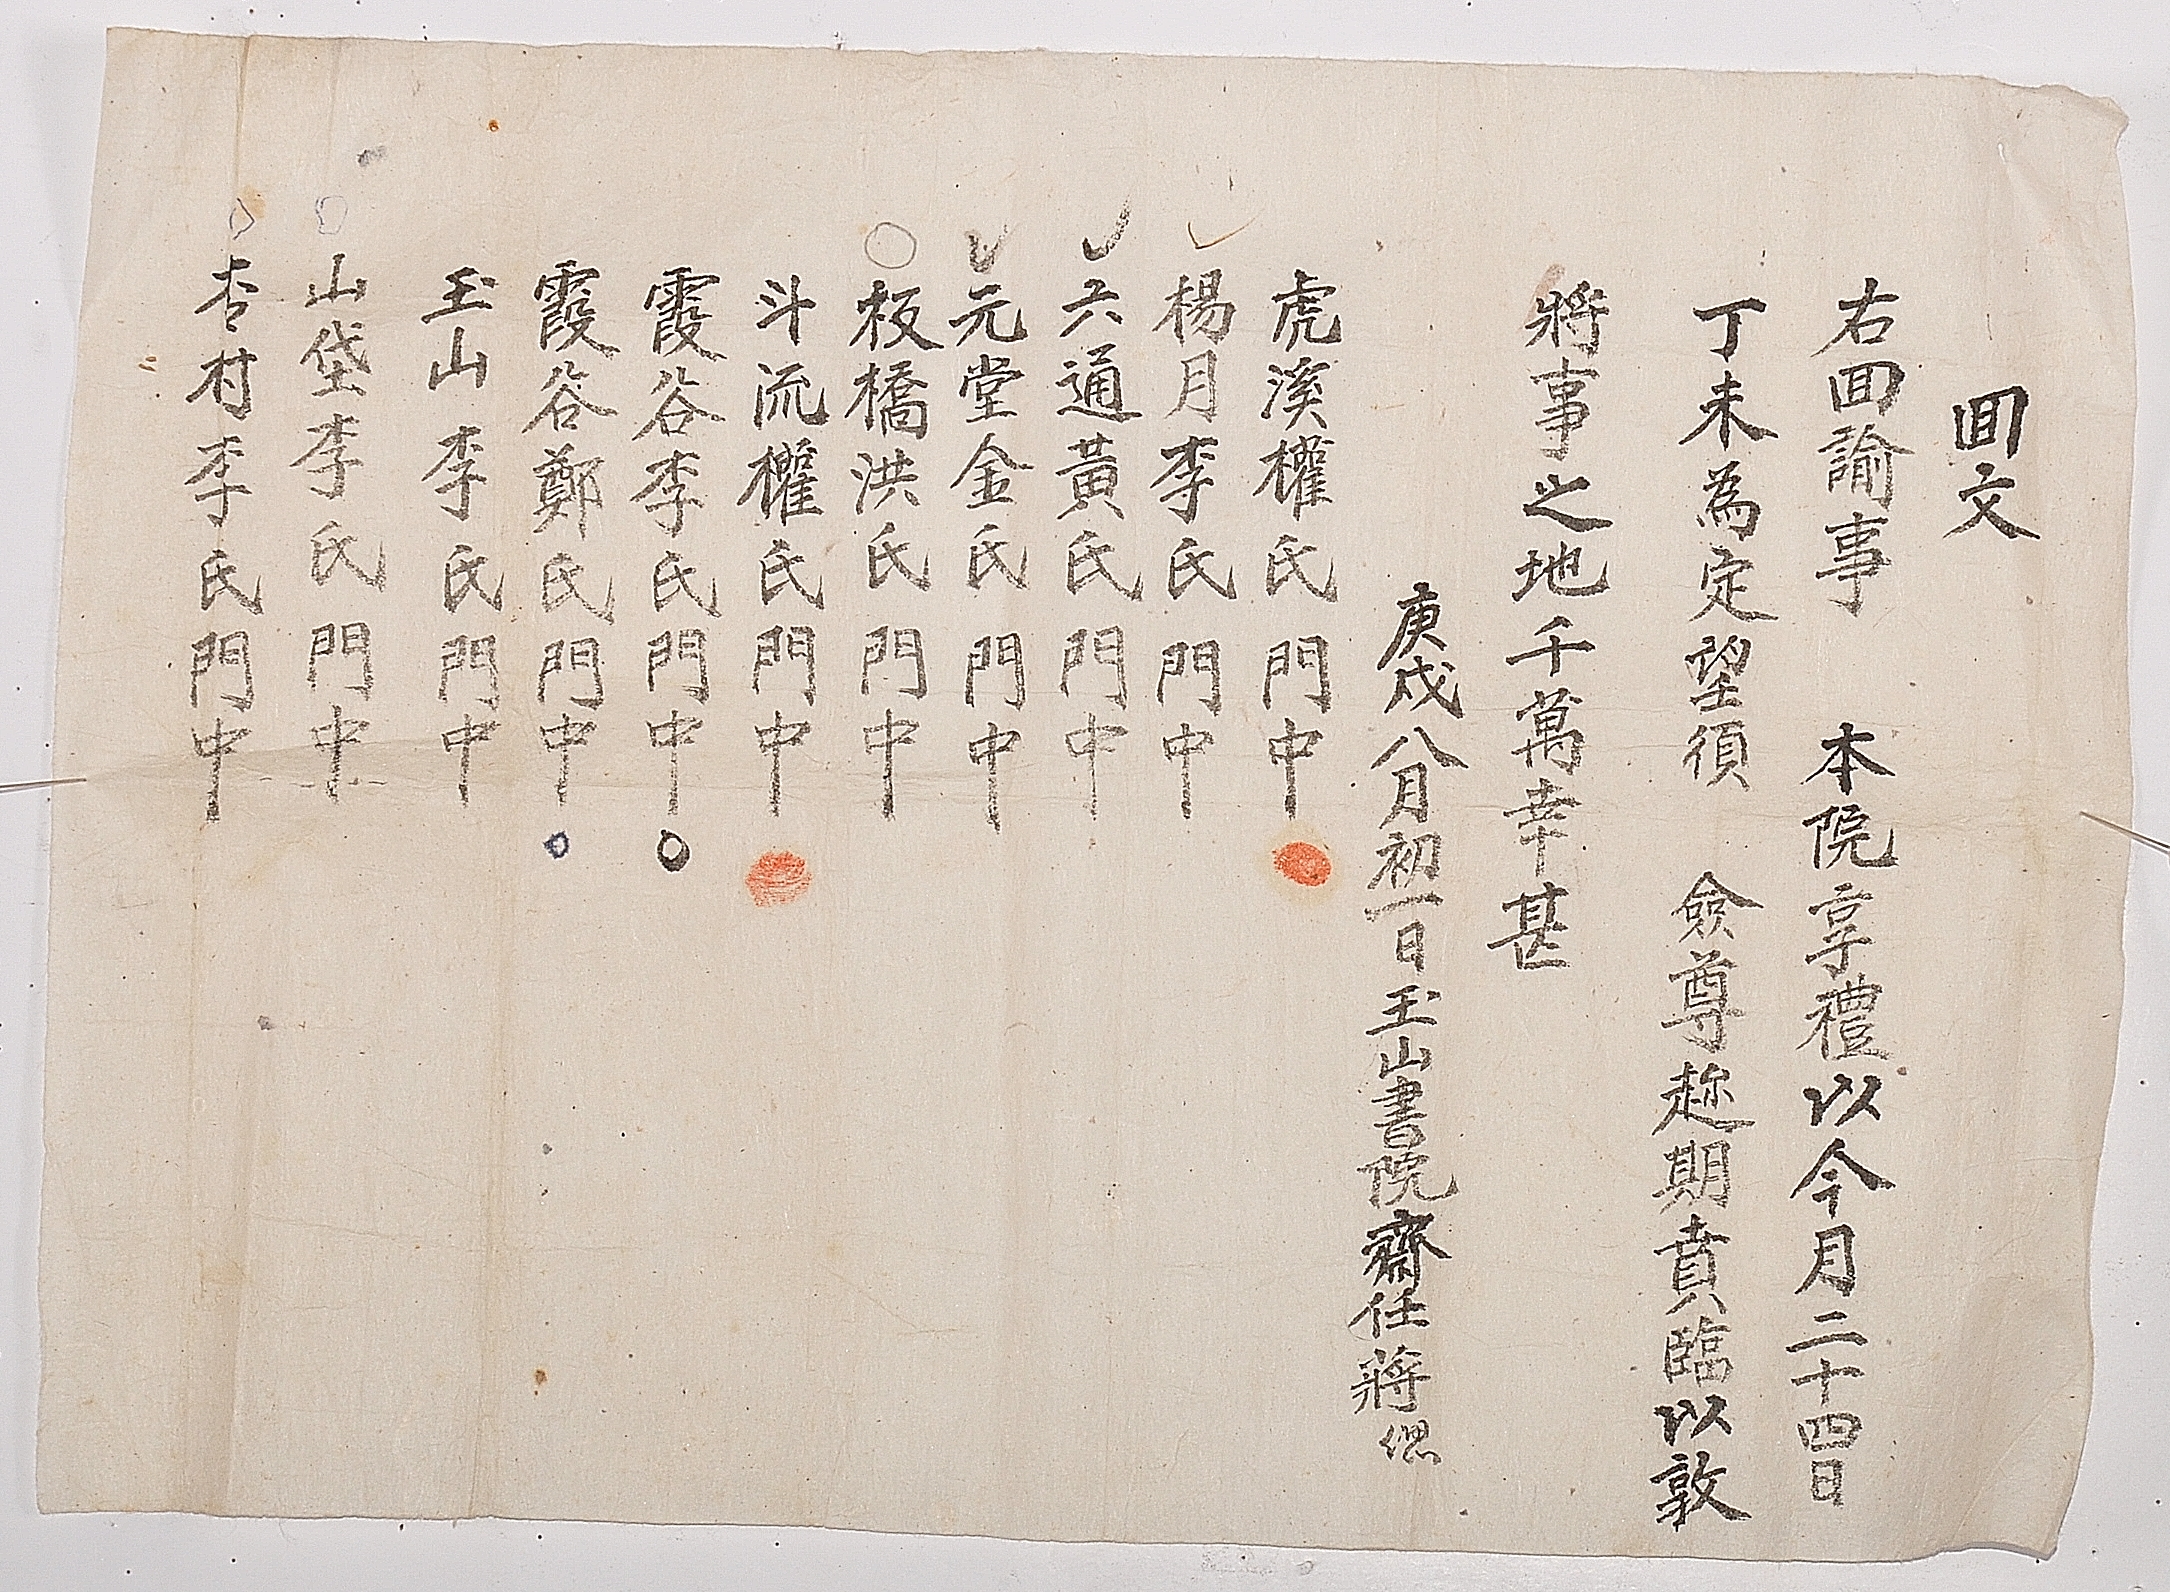 回文
右回諭事 本院享禮以今月二十四日
丁未為定望須 僉尊趂期賁臨以敦
將事之地千萬幸甚
庚戌八月初一日玉山書院齋任蔣偲
虎溪權氏門中
楊月李氏門中
六通黃氏門中
元堂金氏門中
板橋洪氏門中
斗流權氏門中
霞谷李氏門中
霞谷鄭氏門中
玉山李氏門中
山垈李氏門中
杏村李氏門中